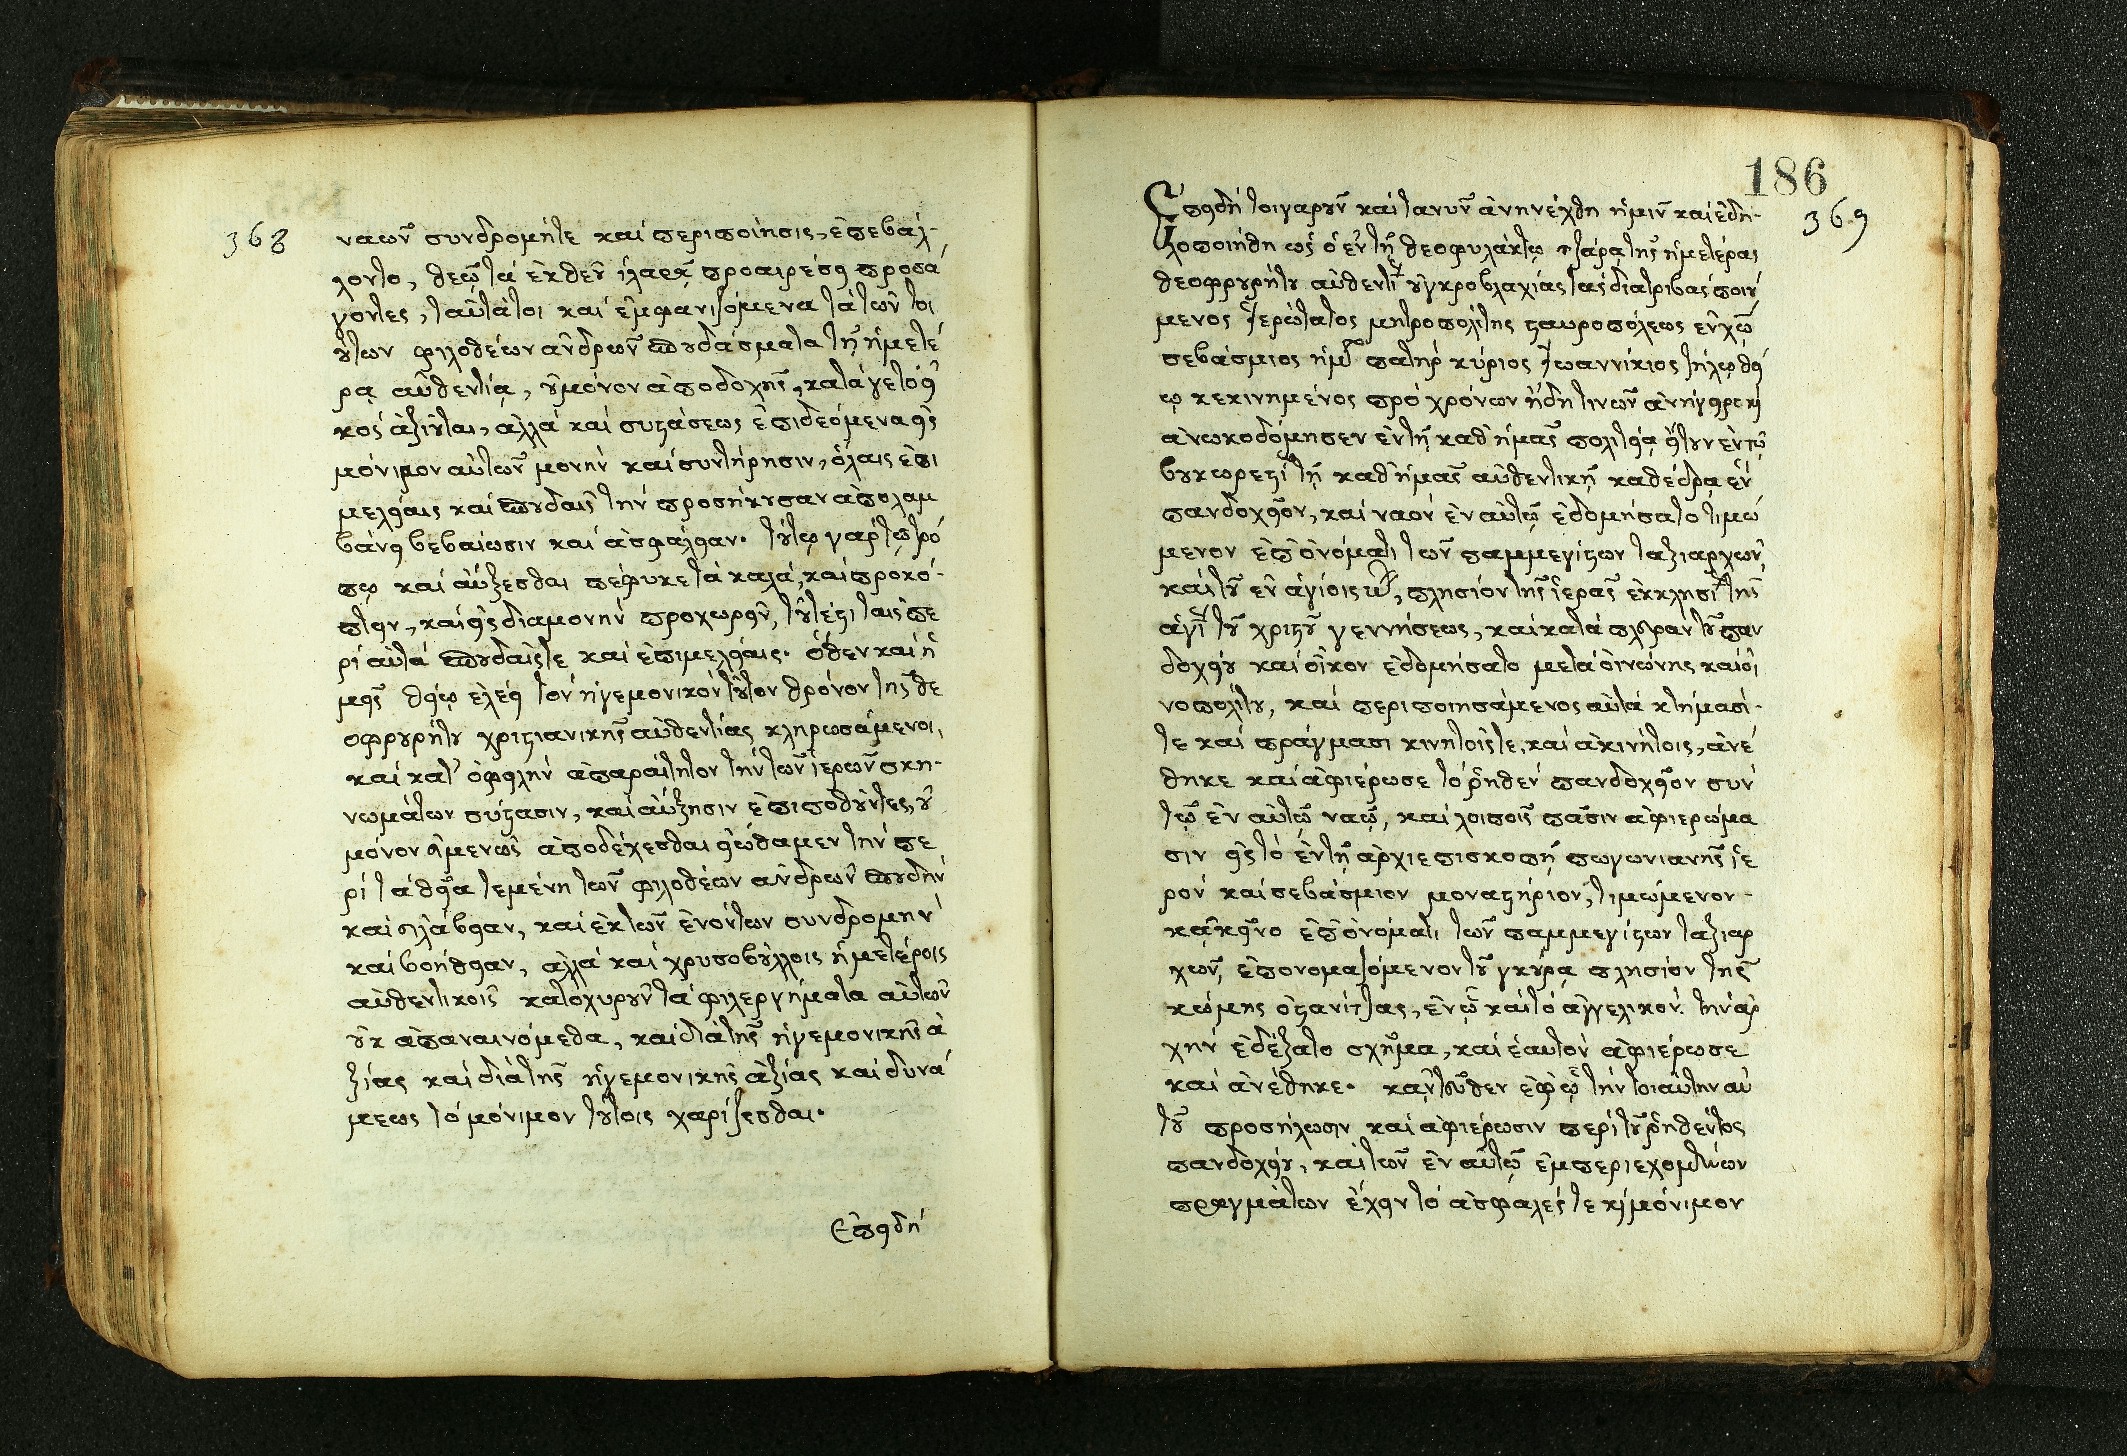 368
ναῶν συνδρομήτε καὶ περιποίησις, ἐπεβάλ-
λοντο, θεῷ τὰ ἐκθεῦ ἱλαρᾷ προαιρέσει προσά
γοντες, ταῦτάτοι καὶ ἐμφανιζόμενα τὰ τῶν τοι
ούτων φιλοθέων ἀνδρῶν σπουδάσματα τῇ ἡμετέ
ρᾳ αὐθεντίᾳ, οὐμόνον ἀποδοχῆς, κατάγε τὸ εἰ
κὸς ἀξιοῦται, ἀλλὰ καὶ συστάσεως ἐπιδεόμενα εἰς
μόνιμον αὐτῶν μονὴν καὶ συντήρησιν, ὅλαις ἐπι
μελείαις καὶ σπουδαῖς τὴν προσήκουσαν ἀπολαμ
βάνει βεβαίωσιν καὶ ἀσφάλειαν. τούτῳ γὰρ τῷ τρό
πῳ καὶ αὔξεσθαι πέφυκε τὰ καλά, καὶ προκό-
πτειν, καὶ εἰς διαμονὴν προχωρεῖν, τουτέστι ταῖς πε
ρὶ αὐτὰ σπουδαῖς τε καὶ ἐπιμελείαις. ὅθεν καὶ ἡ
μεῖς θείῳ ἐλέει τὸν ἡγεμονικὸν τοῦτον θρόνον τῆς θε
οφρουρήτου χριστιανικῆς αὐθεντίας κληρωσάμενοι,
καὶ κατ' ὀφειλὴν ἀπαραίτητον τὴν τῶν ἱερῶν σκη-
νωμάτων σύστασιν, καὶ αὔξησιν ἐπιποθοῦντες, οὐ
μόνον ἀσμένως ἀποδέχεσθαι εἰώθαμεν τὴν πε
ρὶ τὰ θεῖα τεμένη τῶν φιλοθέων ἀνδρῶν σπουδὴν
καὶ εὐλάβειαν, καὶ ἐκ τῶν ἐνόντων συνδρομὴν
καὶ βοήθειαν, ἀλλὰ καὶ χρυσοβούλλοις ἡμετέροις
αὐθεντικοῖς κατοχυροῦν τὰ φιλεργήματα αὐτῶν
οὐκ ἀπαναινόμεθα, καὶ διὰ τῆς ἡγεμονικῆς ἀ
ξίας καὶ διὰ τῆς ἡγεμονικῆς ἀξίας καὶ δυνά
μεως τὸ μόνιμον τούτοις χαρίζεσθαι.
ἐπειδὴ
186
369
Ἐπειδὴ τοιγαροῦν καὶ τανῦν ἀνηνέχθη ἡμῖν καὶ ἐδη-
λοποιήθη ὡς ὁ ἐν τῇ θεοφυλάκτῳ τζάρᾳ τῆς ἡμετέρας
θεοφρουρήτου αὐθεντί οὑγκροβλαχίας τὰς διατριβὰς ποιού
μενος ἱερώτατος μητροπολίτης σταυροπόλεως ἐν χῷ
σεβάσμιος ἡμῶν πατὴρ κύριος Ἰωαννίκιος ζήλῳ θεί
ῳ κεκινημένος πρὸ χρόνων ἤδη τινῶν ἀνήγειρε καὶ
ἀνωκοδόμησεν ἐν τῇ καθ' ἡμᾶς πολιτείᾳ ἤτουν ἐν τῷ
βουκωρεστί τῇ καθ' ἡμᾶς αὐθεντικῇ καθέδρᾳ ἓν
πανδοχεῖον, καὶ ναὸν ἐν αὐτῷ ἐδομήσατο τιμώ
μενον ἐπ' ὀνόματι τῶν παμμεγίστων ταξιαρχῶν,
καὶ τοῦ ἐν ἁγίοις , πλησίον τῆς ἱερᾶς ἐκκλησί τῆς
ἁγί τοῦ χριστοῦ γεννήσεως, καὶ κατὰ πλευρὰν τοῦ παν
δοχείου καὶ οἶκον ἐδομήσατο μετὰ οἰνώνης καὶ οἰ
νοπολίτου, καὶ περιποιησάμενος αὐτὰ κτήμασί-
τε καὶ πράγμασι κινητοῖς τε, καὶ ἀκινήτοις, ἀνέ
θηκε καὶ ἀφιέρωσε τὸ ῥηθὲν πανδοχεῖον σὺν
τῷ ἐν αὐτῷ ναῷ, καὶ λοιποῖς πᾶσιν ἀφιερώμα
σιν εἰς τὸ ἐν τῇ ἀρχιεπισκοπῇ πωγωνιανῆς ἱε
ρὸν καὶ σεβάσμιον μοναστήριον, τιμώμενον-
κἀκεῖνο ἐπ' ὀνόματι τῶν παμμεγίστων ταξιαρ
χῶν, ἐπονομαζόμενον τοῦ γκύρα πλησίον τῆς
κώμης ὀστανίτζας, ἐν ᾧ καὶ τὸ ἀγγελικὸν τὴν ἀρ
χὴν ἐδέξατο σχῆμα, καὶ ἑαυτὸν ἀφιέρωσε
καὶ ἀνέθηκε. κἀντεῦθεν ἐφ' ᾧ τὴν τοιαύτην αὐ
τοῦ προσήλωσιν καὶ ἀφιέρωσιν περὶ τοῦ ῥηθέντος
πανδοχείου, καὶ τῶν ἐν αὐτῷ ἐμπεριεχομένων
πραγμάτων ἔχειν τὸ ἀσφαλές τε καὶ μόνιμον